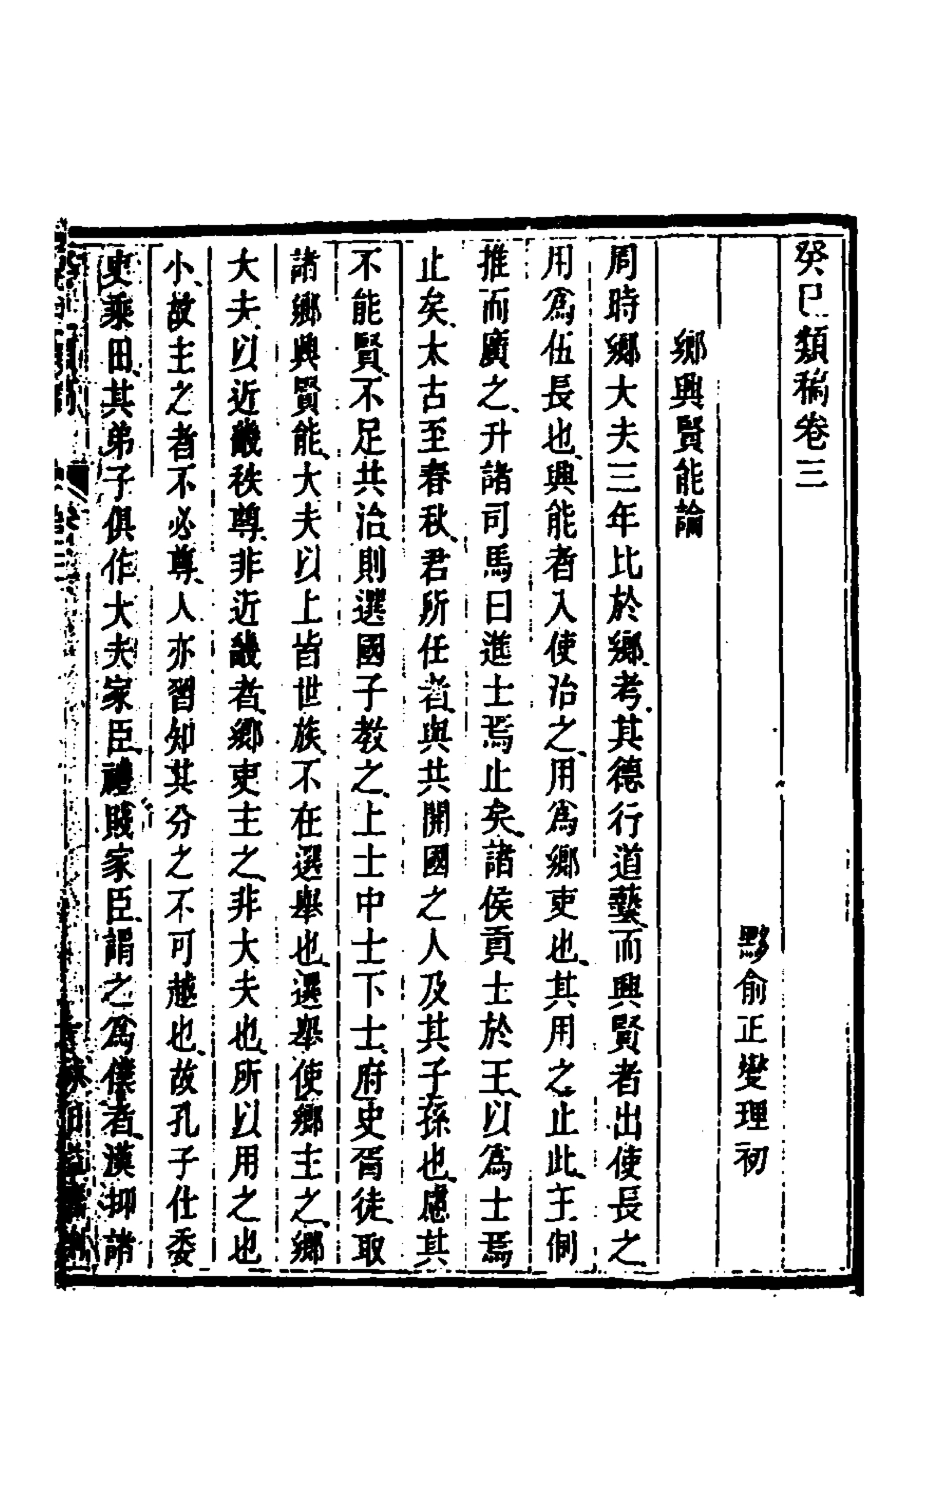 癸巳類稿卷三
黟俞正燮理初
鄉興賢能論
周時鄉大夫三年比於鄉、考其德行道藝、而興賢者出使長之、
用為伍長也、興能者入使治之、用為鄉吏也、其用之止此、王制
推而廣之、升諸司馬曰進士焉止矣、諸侯貢士於王、以為士焉
止矣、太古至春秋、君所任者、與共開國之人及其子孫也、慮其
不能賢、不足共治、則選國子教之、上士中士下士、府史胥徒、取
諸鄉興賢能、大夫以上皆世族、不在選舉也、選舉使鄉主之、鄉
大夫、以近畿秩尊、非近畿者、鄉吏主之、非大夫也、所以用之也
小、故主之者不必尊、人亦習知其分之不可越也、故孔子仕委
吏乘田、其弟子俱作大夫家臣、禮賤家臣、謂之為僕者、漢抑諸